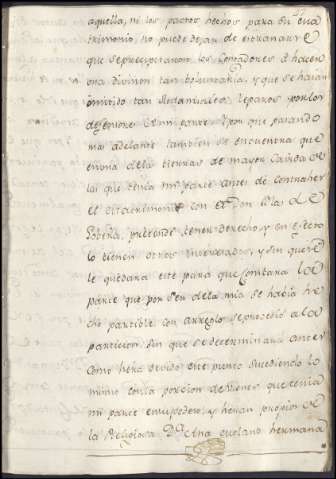 aquella, ni los pactos hechos para su ma
trimonio, no puede dejar de estranarse
que se precipitaron los Contadores á hacer
una division tan voluntaria, y que se haian
omitido tan fundamentales reparos por los
defensores de mi parte. Y por que pasando
mas adelante tambien se encuentra que
en una de las tierras de mayor Cavida de
las que tenia mi parte antes de contraher
el Matrimonio con el Dn Blas de
pretende tener derecho, y en efecto
lo tienen otros interesados, y sin que se
le quedara este para que constara la
parte que por ser de la mia se habia he
cho partible con arreglo se procedió a la
particion, sin que se determinara antes
como hera devido este punto sucediendo lo
mismo con la porcion de vienes que tenia
mi parte en su poder, y heran propios de
la Religiosa Da Ana hermana